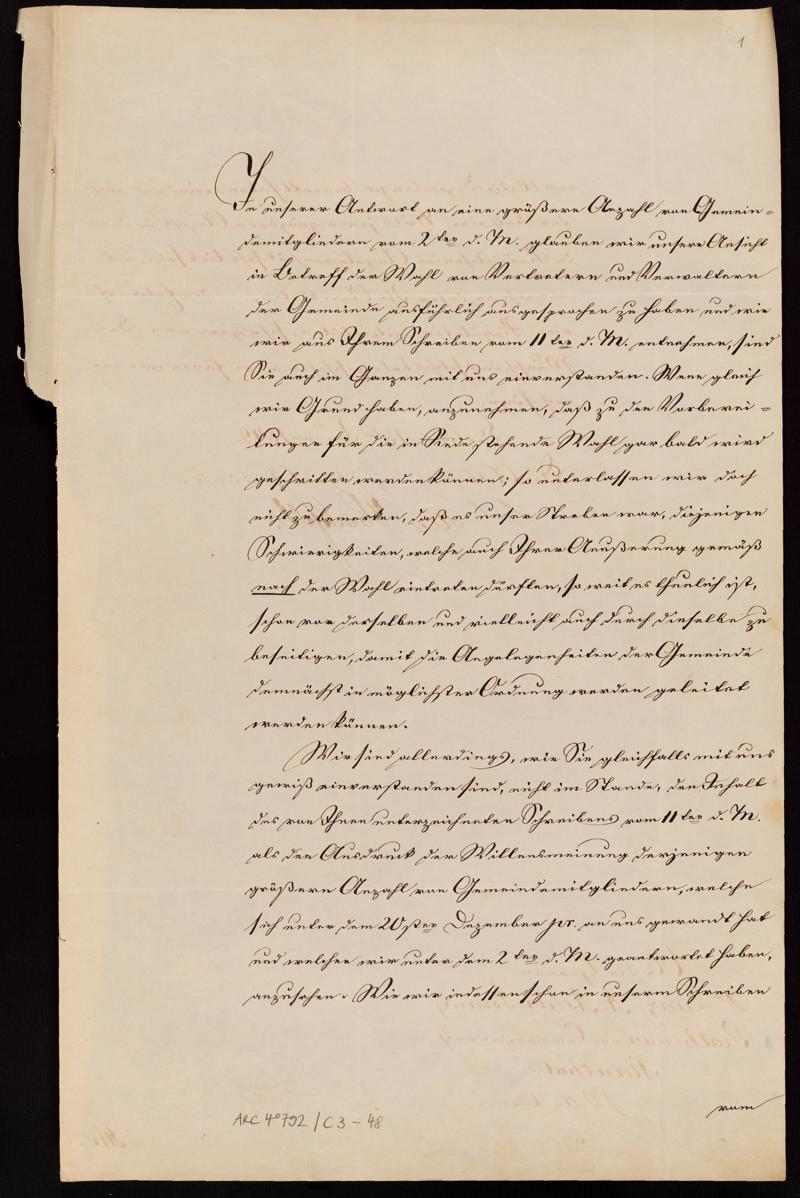 1
In unserer Antwort an eine größere Anzahl von Gemein-
demitgliedern vom 2ten d. M. glauben wir unsere Ansicht
in Betreff der Wahl von Vertretern und Verwaltern
der Gemeinde ausführlich ausgesprochen zu haben und wie
wir aus Ihrem Schreiben vom 11ten d. M. entnehmen, sind
Sie auch im Ganzen mit uns einverstanden. Wenn gleich
wir Grund haben, anzunehmen, daß zu den Vorberei-
tungen für die in Rede stehende Wahl gar bald wird
geschritten werden können; so unterlassen wir doch
nicht zu bemerken, daß es unser Streben war, diejenigen
Schwierigkeiten, welche auch Ihrer Aeußerung gemäß
nach der Wahl eintreten dürften, so weit es thunlich ist,
schon vor derselben und vielleicht auch durch dieselbe zu
beseitigen, damit die Angelegenheiten der Gemeinde
demnächst in möglichster Ordnung werden geleitet
werden können.
Wir sind allerdings, wie Sie gleichfalls mit uns
gewiß einverstanden sind, nicht im Stande, den Inhalt
des von Ihnen unterzeichneten Schreibens vom 11ten d. M.
als den Ausdruck der Willensmeinung derjenigen
größern Anzahl von Gemeindemitgliedern, welche
sich unter dem 20sten Dezember pr. an uns gewandt hat
und welchen wir unter dem 2ten d. M. geantwortet haben,
anzusehen. Wie wir indessen schon in unserm Schreiben
vom
ARC 4°792/C3-48